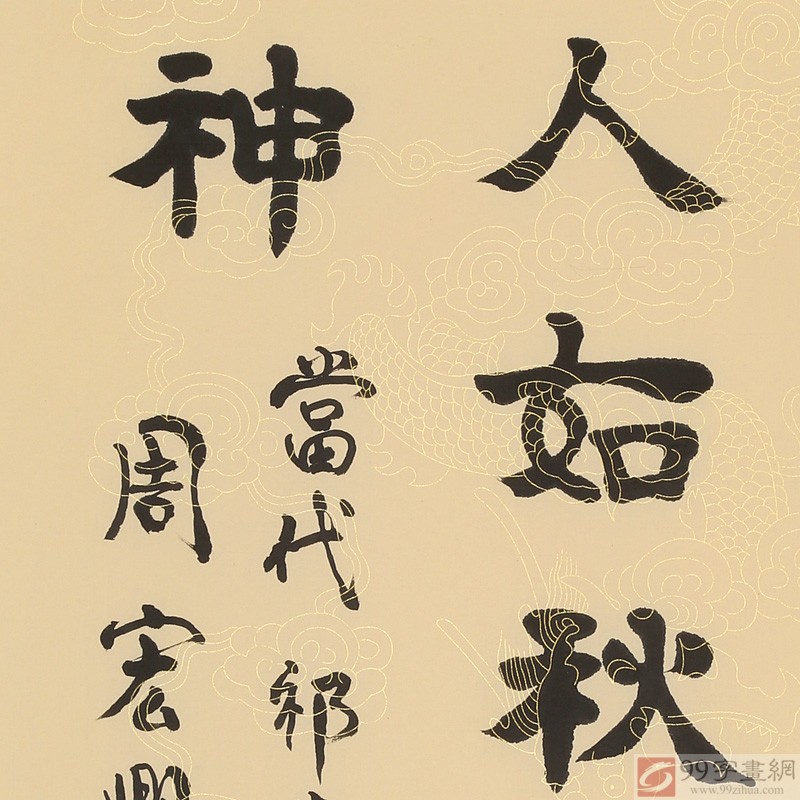 人如秋
神
當代祁
周宏
99字畫網
www.99zihua.com